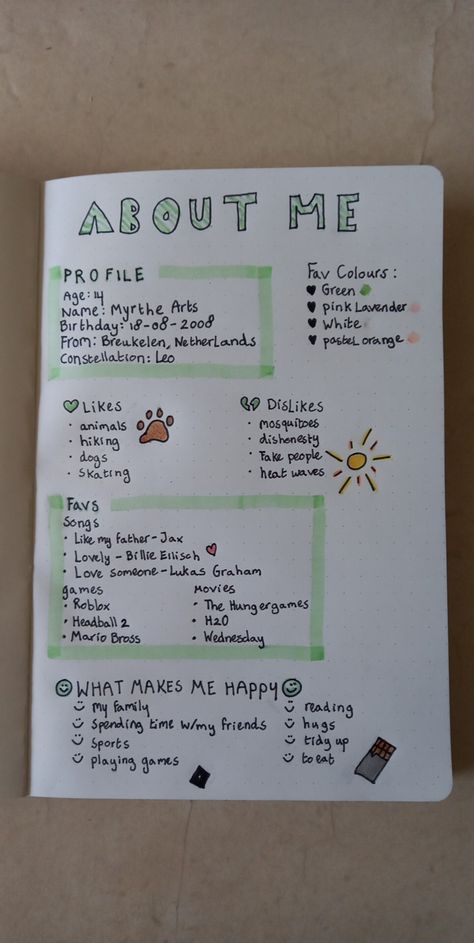 ABOUT ME
PROFILE
Age: 14
Name: Myrthe Arts
Birthday: 18-08-2008
From: Breukelen, Netherlands
Constellation: Leo
Fav Colours:
Green
pink Lavender
White
pastel orange
Likes
• animals
• hiking
• dogs
• skating
Dislikes
• mosquitoes
• dishonesty
• Fake people
• heat waves
Favs
Songs
• Like my father - Jax
• Lovely - Billie Eilisch
• Love someone - Lukas Graham
games
• Roblox
• Headball 2
• Mario Bross
Movies
• The Hungergames
• H2O
• Wednesday
WHAT MAKES ME HAPPY
my family
spending time w/my friends
sports
playing games
reading
hugs
tidy up
to eat